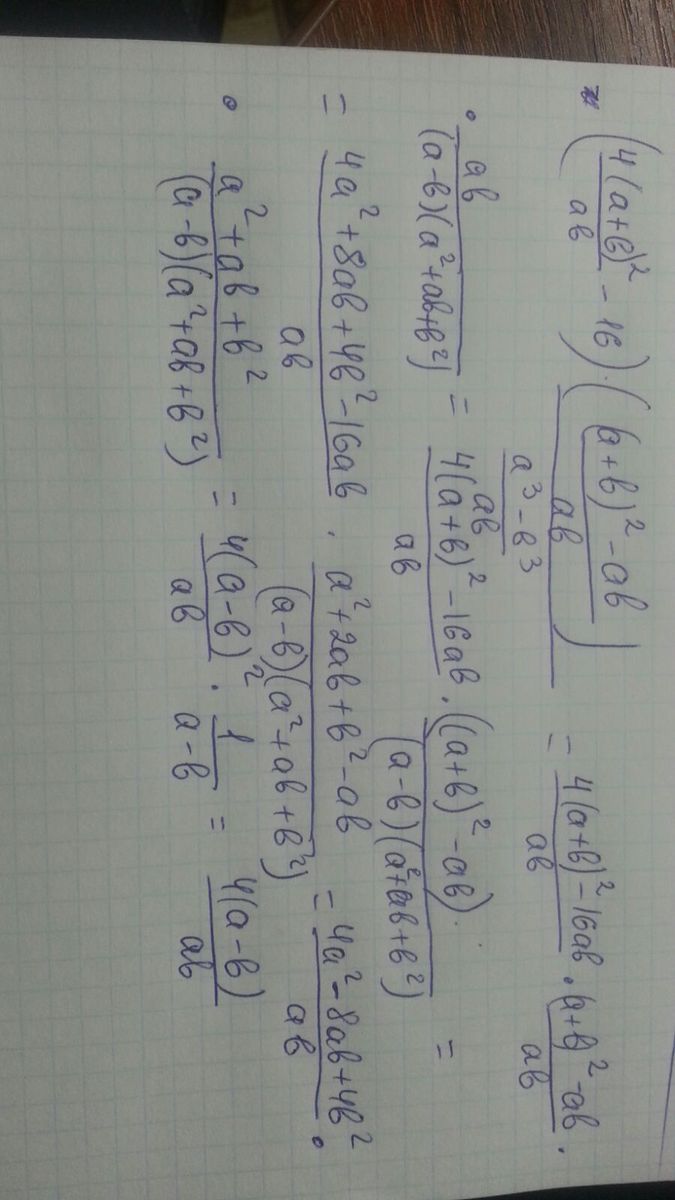 (4(a+b)²/ab − 16) · (((a+b)² − ab)/ab) / ((a³ − b³)/ab) = (4(a+b)² − 16ab)/ab · ((a+b)² − ab)/ab ·
· ab/((a−b)(a²+ab+b²)) = (4(a+b)² − 16ab)/ab · ((a+b)² − ab)/((a−b)(a²+ab+b²)) =
= (4a² + 8ab + 4b² − 16ab)/ab · (a² + 2ab + b² − ab)/((a−b)(a²+ab+b²)) = (4a² − 8ab + 4b²)/ab ·
· (a² + ab + b²)/((a−b)(a²+ab+b²)) = 4(a−b)²/ab · 1/(a−b) = 4(a−b)/ab